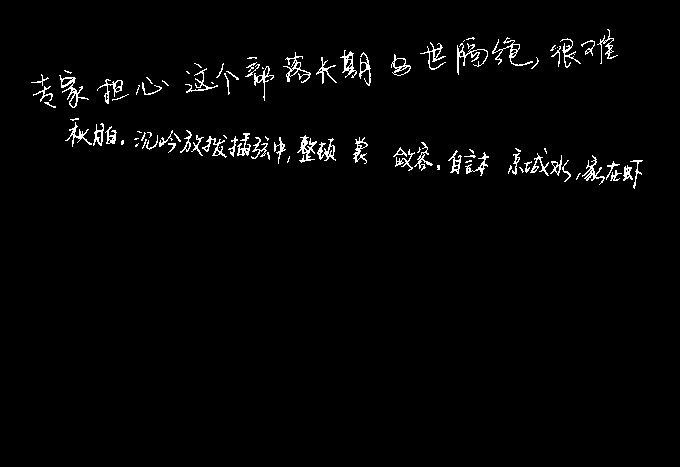 专家担心这个部落长期与世隔绝,很难
秋月白。沉吟放拨插弦中,整顿裳 敛容。自言本 京城水,家在虾